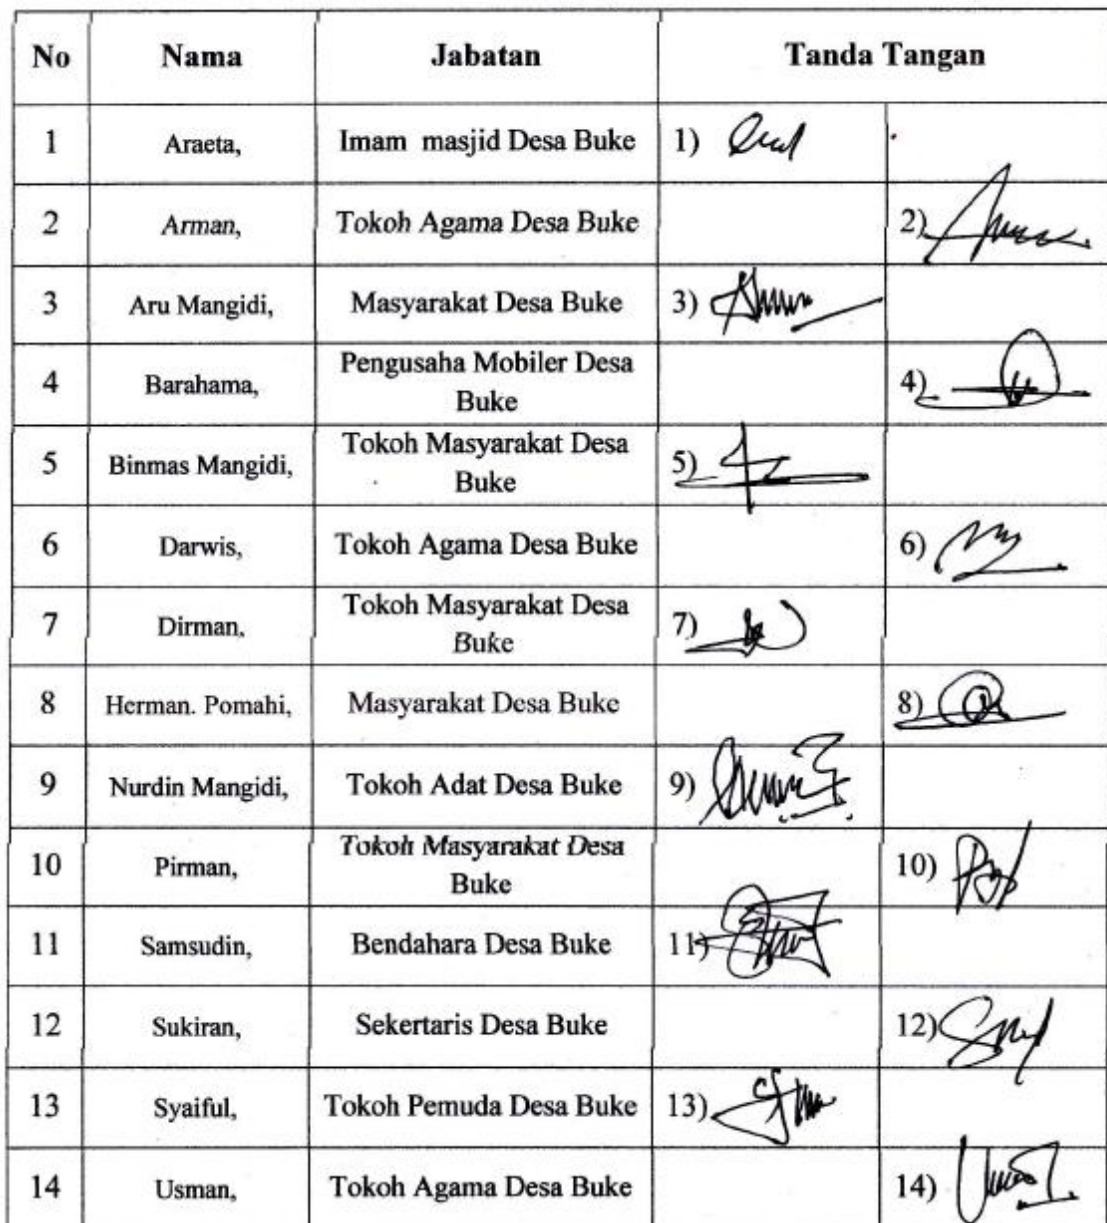 No Nama Jabatan Tanda Tangan
1 Araeta, Imam masjid Desa Buke 1)
2 Arman, Tokoh Agama Desa Buke 2)
3 Aru Mangidi, Masyarakat Desa Buke 3)
4 Barahama, Pengusaha Mobiler Desa
Buke 4)
5 Binmas Mangidi, Tokoh Masyarakat Desa
Buke 5)
6 Darwis, Tokoh Agama Desa Buke 6)
7 Dirman, Tokoh Masyarakat Desa
Buke 7)
8 Herman. Pomahi, Masyarakat Desa Buke 8)
9 Nurdin Mangidi, Tokoh Adat Desa Buke 9)
10 Pirman, Tokoh Masyarakat Desa
Buke 10)
11 Samsudin, Bendahara Desa Buke 11)
12 Sukiran, Sekertaris Desa Buke 12)
13 Syaiful, Tokoh Pemuda Desa Buke 13)
14 Usman, Tokoh Agama Desa Buke 14)